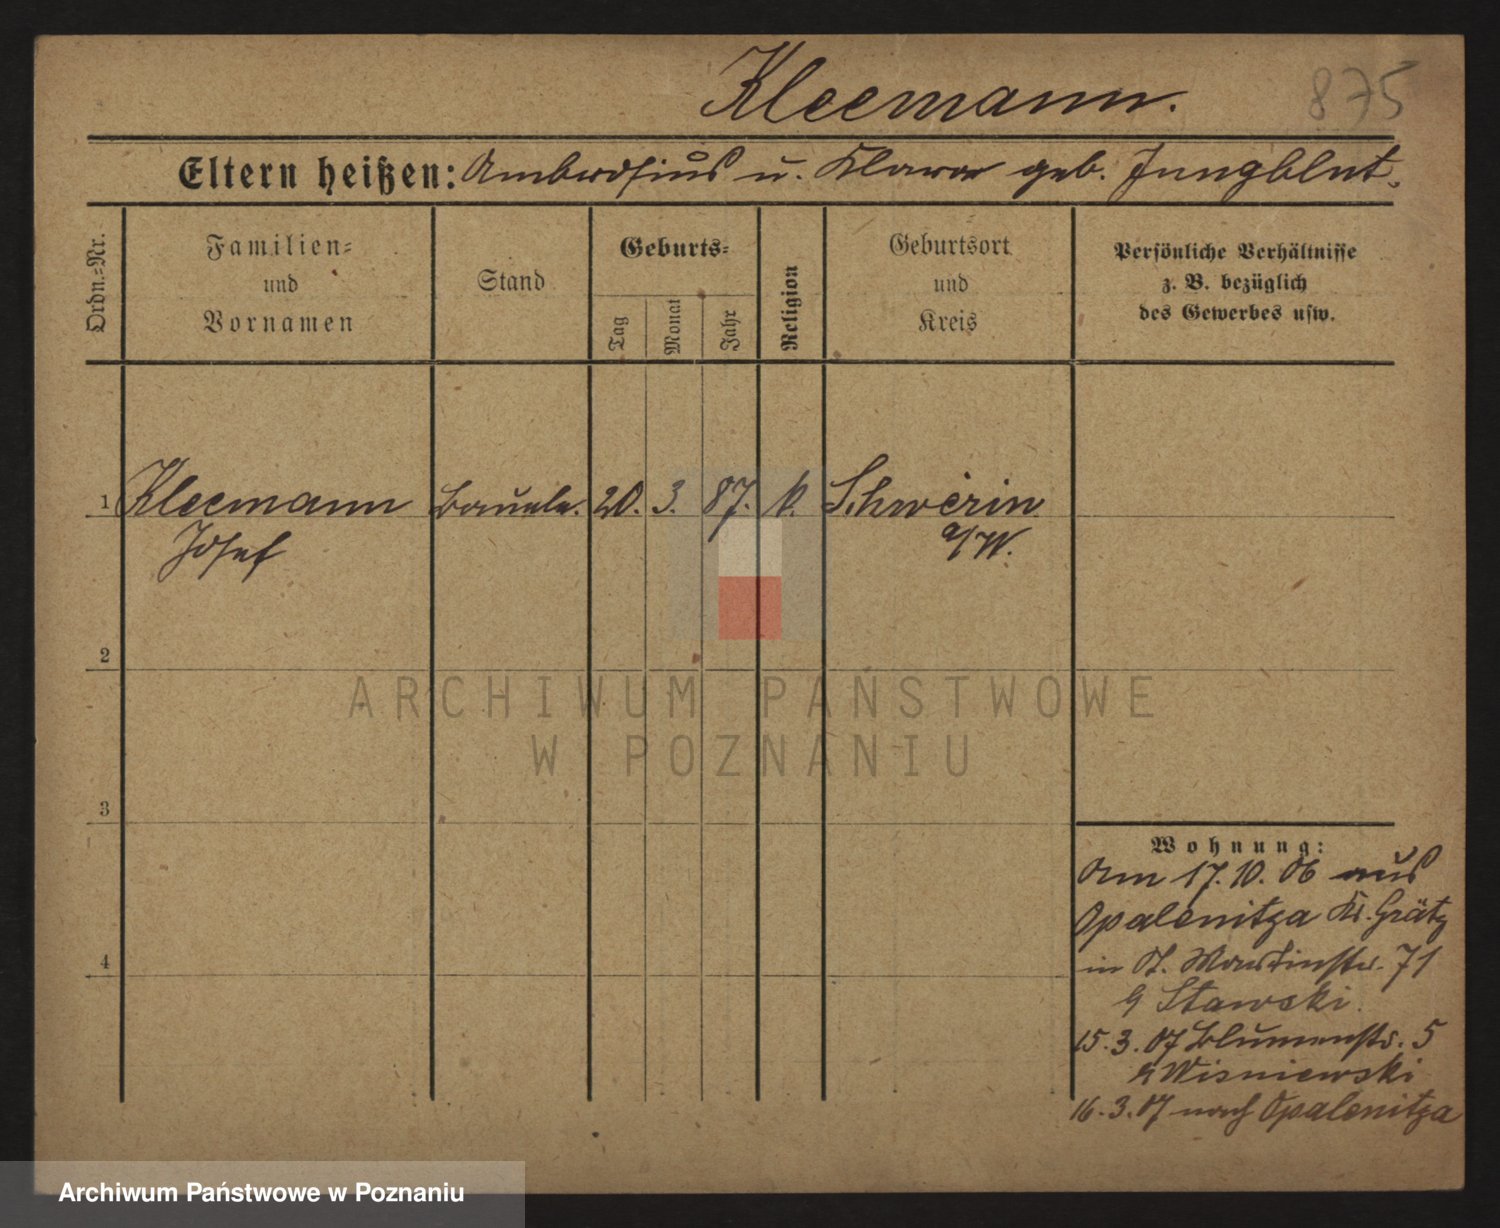 Kleemann.
875
Eltern heißen: Ambrosius u. Klara geb. Jungblut.
Ordn.=Nr.
Familien=
und
Vornamen
Stand
Geburts=
Tag
Monat
Jahr
Religion
Geburtsort
und
Kreis
Persönliche Verhältnisse
z. B. bezüglich
des Gewerbes usw.
1 Kleemann 20. 3. 87. k. Schwerin
Josef a/W.
2
3
4
Wohnung:
Am 17.10.06 aus
Opalenitza Kr. Grätz
in St. Martinstr. 71
Stawski.
15.3.07 Blumenstr. 5
Wisniewski
16.3.07 nach Opalenitza
ARCHIWUM PAŃSTWOWE
W POZNANIU
Archiwum Państwowe w Poznaniu